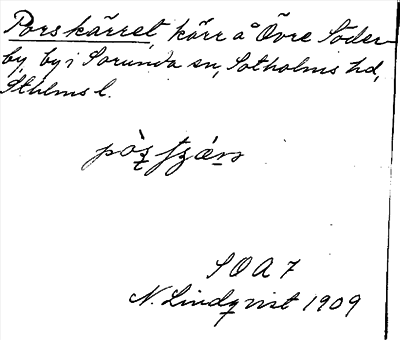 Porskärret, kärr å Övre Söder-
by, by i Sorunda sn, Sotholms hd,
Sthlms l.
SOA 7
N. Lindqvist 1909